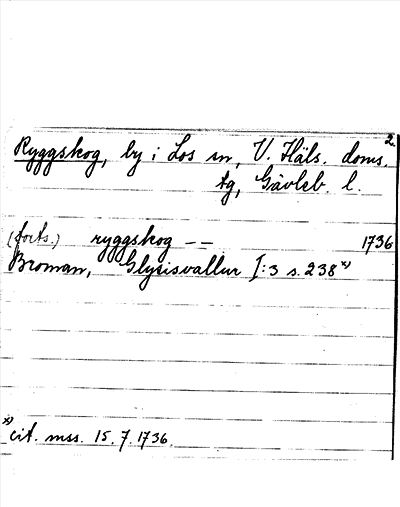 2.
Ryggskog, by i Los sn, V. Häls. doms.
tg, Gävleb. l.
(forts.) ryggskog -- 1736
Broman, Glysisvallur I:3 s. 238 x)
x) cit. mss. 15.7.1736.